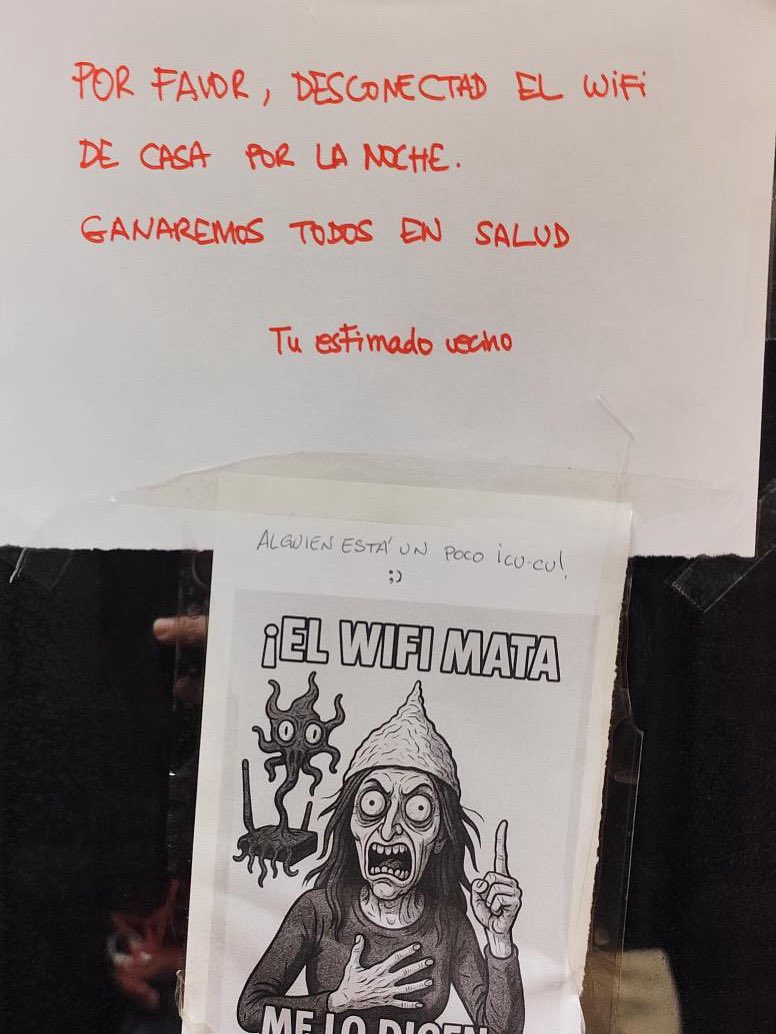 POR FAVOR, DESCONECTAD EL WiFi
DE CASA POR LA NOCHE.
GANAREMOS TODOS EN SALUD
Tu estimado vecino
ALGUIEN ESTÁ UN POCO ¡CU-CU!
;)
¡EL WIFI MATA
ME LO DICEN